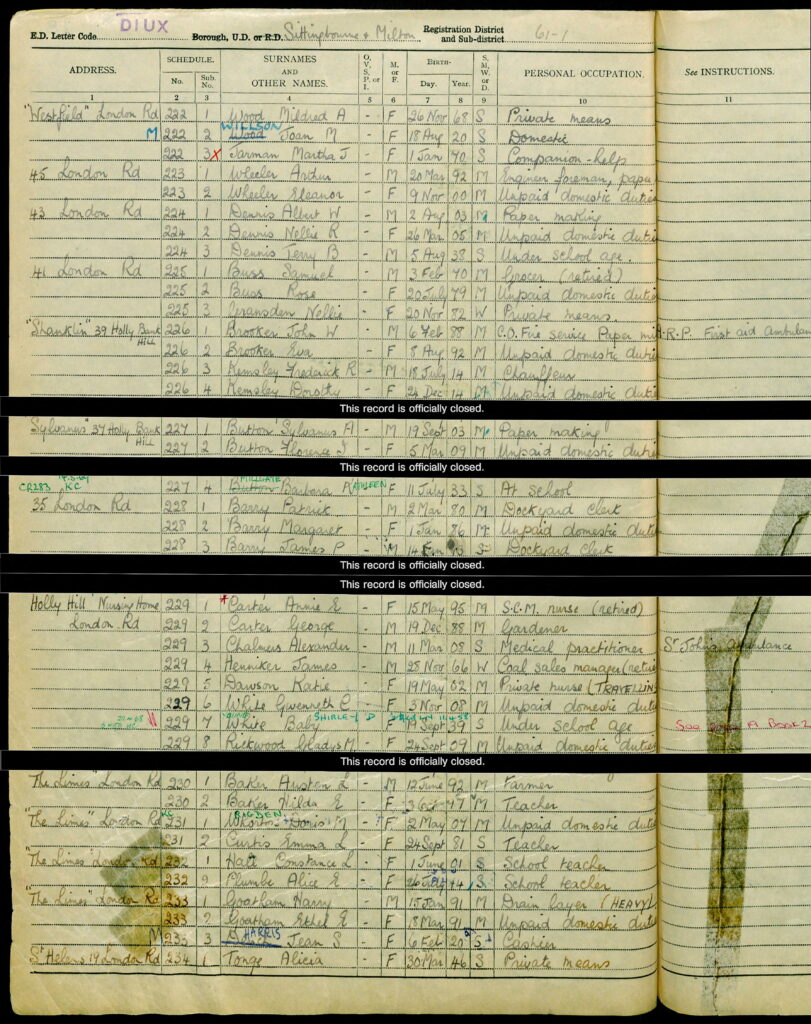 DIUX
E.D. Letter Code Borough, U.D. or R.D. Sittingbourne & Milton Registration District and Sub-district 61-1
ADDRESS. SCHEDULE. No. Sub. No. SURNAMES AND OTHER NAMES. O, V, S, P, or I M. or F. BIRTH- Day. Year. S, M, W, or D. PERSONAL OCCUPATION. See INSTRUCTIONS.
1 2 3 4 5 6 7 8 9 10 11
"Westfield" London Rd 222 1 Wood Mildred A - F 26 Nov 68 S Private means
M 222 2 Wood WILLSON Joan M - F 18 Aug 20 S Domestic
222 3 X Jarman Martha J - F 1 Jan 70 S Companion-help
45 London Rd 223 1 Wheeler Arthur - M 20 Mar 92 M Engineer foreman, pape
223 2 Wheeler Eleanor - F 9 Nov 00 M Unpaid domestic dutie
43 London Rd 224 1 Dennis Albert W - M 2 Aug 03 M Paper making
224 2 Dennis Nellie R - F 26 Mar 05 M Unpaid domestic dutie
224 3 Dennis Terry B - M 5 Aug 38 S Under school age.
41 London Rd 225 1 Buss Samuel - M 3 Feb 70 M Grocer (retired)
225 2 Buss Rose - F 20 July 79 M Unpaid domestic dutie
225 3 Gransden Nellie - F 20 Nov 82 W Private means.
"Shanklin" 39 Holly Bank Hill 226 1 Brooker John W - M 6 Feb 88 M C.O. Fire service Paper mi A.R.P. First aid ambulan
226 2 Brooker Eva - F 8 Aug 92 M Unpaid domestic dutie
226 3 Kemsley Frederick R - M 18 July 14 M Chauffeur
226 4 Kemsley Dorothy - F 24 Dec 14 M Unpaid domestic dutie
This record is officially closed.
Sylvanus" 37 Holly Bank Hill 227 1 Button Sylvanus A - M 19 Sept 03 M Paper making
227 2 Button Florence J - F 5 Mar 09 M Unpaid domestic dutie
This record is officially closed.
CR283 KC 227 4 Button MILLGATE Barbara A KATHLEEN F 11 July 33 S At school
35 London Rd 228 1 Barry Patrick - M 2 Mar 80 M Dockyard Clerk
228 2 Barry Margaret - F 1 Jan 86 M Unpaid domestic dutie
228 3 Barry James P - M 14 S Dockyard Clerk
This record is officially closed.
This record is officially closed.
Holly Hill Nursing Home 229 1 Carter Annie E - F 15 May 95 M S.C.M. nurse (retired)
London Rd 229 2 Carter George - M 19 Dec 88 M Gardener
229 3 Chalmers Alexander - M 11 Mar 08 S Medical practitioner St John's ambulance
229 4 Henniker James - M 28 Nov 66 W Coal sales manager (retire
229 5 Dawson Katie - F 19 May 02 M Private nurse (TRAVELLIN
229 6 White Gwenyth C - F 3 Nov 08 M Unpaid domestic dut
229 7 White Baby SHIRLEY D F 17 Sept 39 S Under school age See A Book 2
229 8 Ruckwood Gladys M - F 24 Sept 09 M Unpaid domestic dutie
This record is officially closed.
The Limes" London Rd 230 1 Baker Austen L - M 12 June 92 M Farmer
230 2 Baker Hilda E - F 3 Oct 97 M Teacher
"The Limes" London Rd 231 1 BIGDEN Doris M - F 2 May 07 M Unpaid domestic dut
231 2 Curtis Emma L - F 24 Sept 81 S Teacher
"The Limes" London Rd 232 1 Hall Constance L - F 1 June 01 S School teacher
232 2 Plumbe Alice E - F 26 July S School teacher
"The Limes" London Rd 233 1 Goatham Harry - M 15 Jan 91 M Drain layer (HEAVY)
233 2 Goatham Ethel E - F 18 Mar 91 M Unpaid domestic dutie
M 233 3 HARRIS Jean S - F 6 Feb 20 S Cashier
St Helens 19 London Rd 234 1 Tonge Alicia - F 30 Mar 46 S Private means